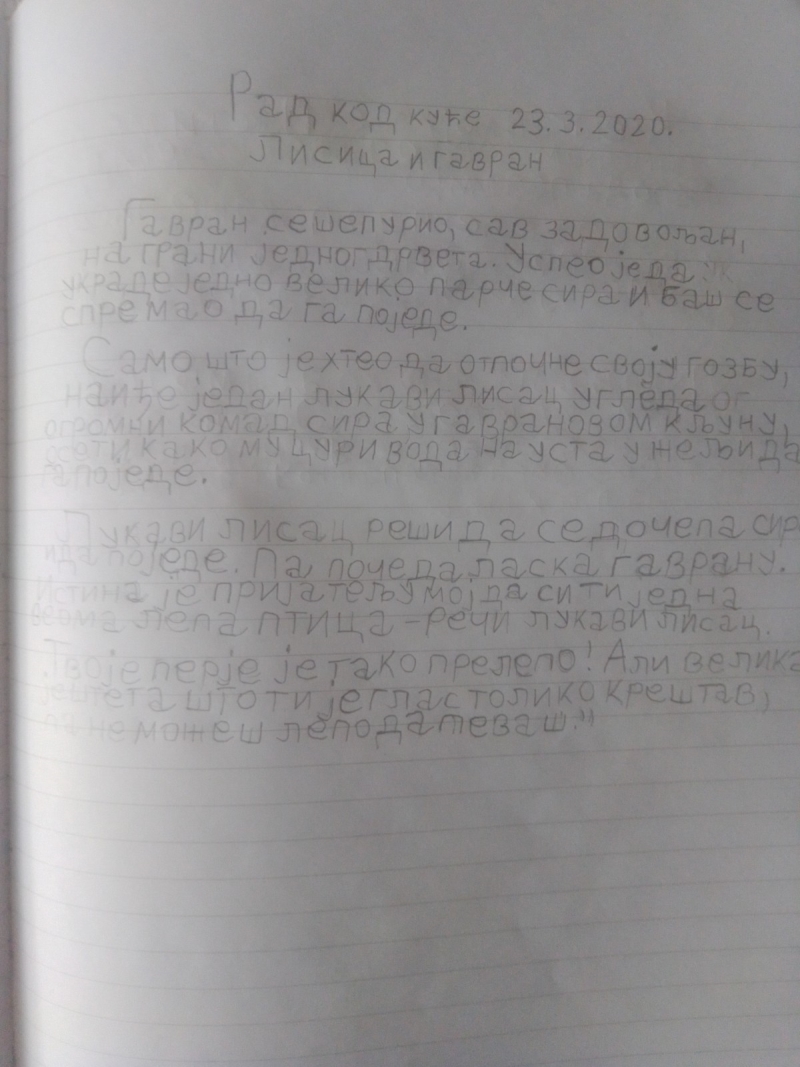 Рад код куће 23.3.2020.
Лисица и гавран
Гавран се шепурио, сав задовољан,
на грани једног дрвета. Успео је да
украде једно велико парче сира и баш се
спремао да га поједе.
Само што је хтео да отпочне своју гозбу,
наиђе један лукави лисац угледа ог
огромни комад сира у гаврановом кљуну,
осети како му цури вода на уста у жељи да
га поједе.
Лукави лисац реши да се дочепа сир
и да поједе. Па поче да ласка гаврану.
Истина је пријатељу мој да си ти једна
веома лепа птица - речи лукави лисац.
Твоје перје је тако прелепо! Али велика
је штета што ти је глас толико крештав,
па не можеш лепо да певаш."